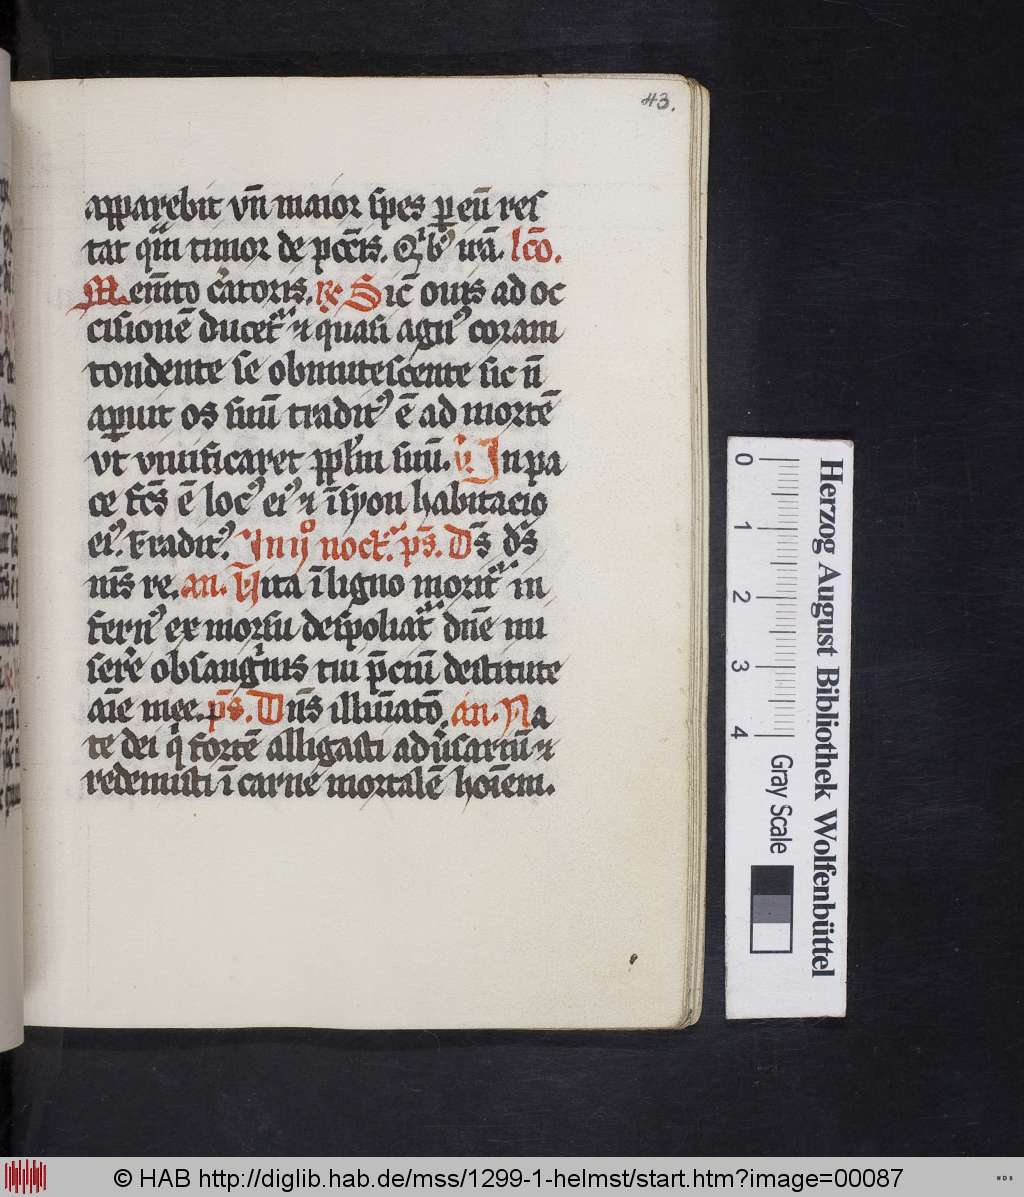 43.
apparebit vn̄ maior spes ꝑ eū res
tat qm̄ timor de pctīs. Qͥbꝰ irā. lcō.
Mem̄to c̄atoris. ℟ Sic̄ ouis ad oc
cisionē ducet᷑ ⁊ quasi agnꝰ coram
tondente se obmutescente sic n̄
aꝑuit os suū traditꝰ ē ad mortē
vt viuificaret ppl̄m suū. ℣. In pa
ce fc̄s ē locꝰ eiꝰ ⁊ ī syon habitacio
eiꝰ. Traditꝰ. In ijͦ noct᷑. p̄s. D̄s d̄s
m̄s re. an. Vita ī ligno morit᷑ in
fernꝰ ex morsu despoliat᷑ dn̄e mi
sere ob sangͥnis tui p̄ciū destitute
aīe mee. p̄s. Dn̄s illuīatō. an. Na
te dei qͥ fortē alligasti aduersariū ⁊
redemisti ī carne mortalē hoīem.
0 1 2 3 4
Gray Scale
Herzog August Bibliothek Wolfenbüttel
© HAB http://diglib.hab.de/mss/1299-1-helmst/start.htm?image=00087